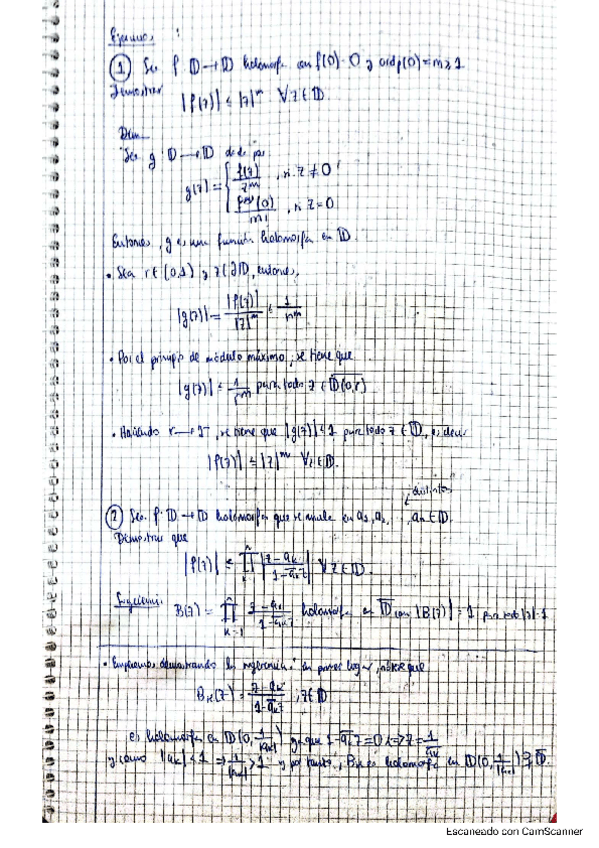 Ejercicios
① Sea f: 𝔻 → 𝔻 holomorfa con f(0)=0 y ord f(0) = m ≥ 1
Demostrar
|f(z)| ≤ |z|^m ∀ z ∈ 𝔻.
Dem
Sea g: 𝔻 → 𝔻 dada por
g(z) = { f(z)/z^m , si z ≠ 0
f^(m)(0)/m! , si z = 0
Entonces, g es una función holomorfa en 𝔻.
• Sea r ∈ (0,1) y z ∈ ∂𝔻, entonces,
|g(z)| = |f(z)|/|z|^m ≤ 1/r^m
• Por el principio de módulo máximo, se tiene que
|g(z)| ≤ 1/r^m para todo z ∈ 𝔻(0,r)
• Haciendo r → 1⁻, se tiene que |g(z)| ≤ 1 para todo z ∈ 𝔻, es decir
|f(z)| ≤ |z|^m ∀ z ∈ 𝔻.
distintos
② Sea f: 𝔻 → 𝔻 holomorfa que se anula en a₁, a₂, aₙ ∈ 𝔻.
Demostrar que
|f(z)| ≤ ∏ |z - aₖ / 1 - āₖz| ∀ z ∈ 𝔻.
Sugerencia: B(z) = ∏_{k=1}^{n} z - aₖ / 1 - āₖz holomorfa en 𝔻̄ con |B(z)| = 1 para todo |z| = 1
• Empecemos demostrando la sugerencia: en primer lugar, que
Bₖ(z) = z - aₖ / 1 - āₖz , z ∈ 𝔻
es holomorfa en 𝔻(0, 1/|aₖ|) ya que 1 - āₖz = 0 <=> z = 1/āₖ
y como |aₖ| < 1 => 1/|aₖ| > 1 y por tanto, Bₖ es holomorfa en 𝔻(0, 1/|aₖ|) ⊇ 𝔻̄.
Escaneado con CamScanner